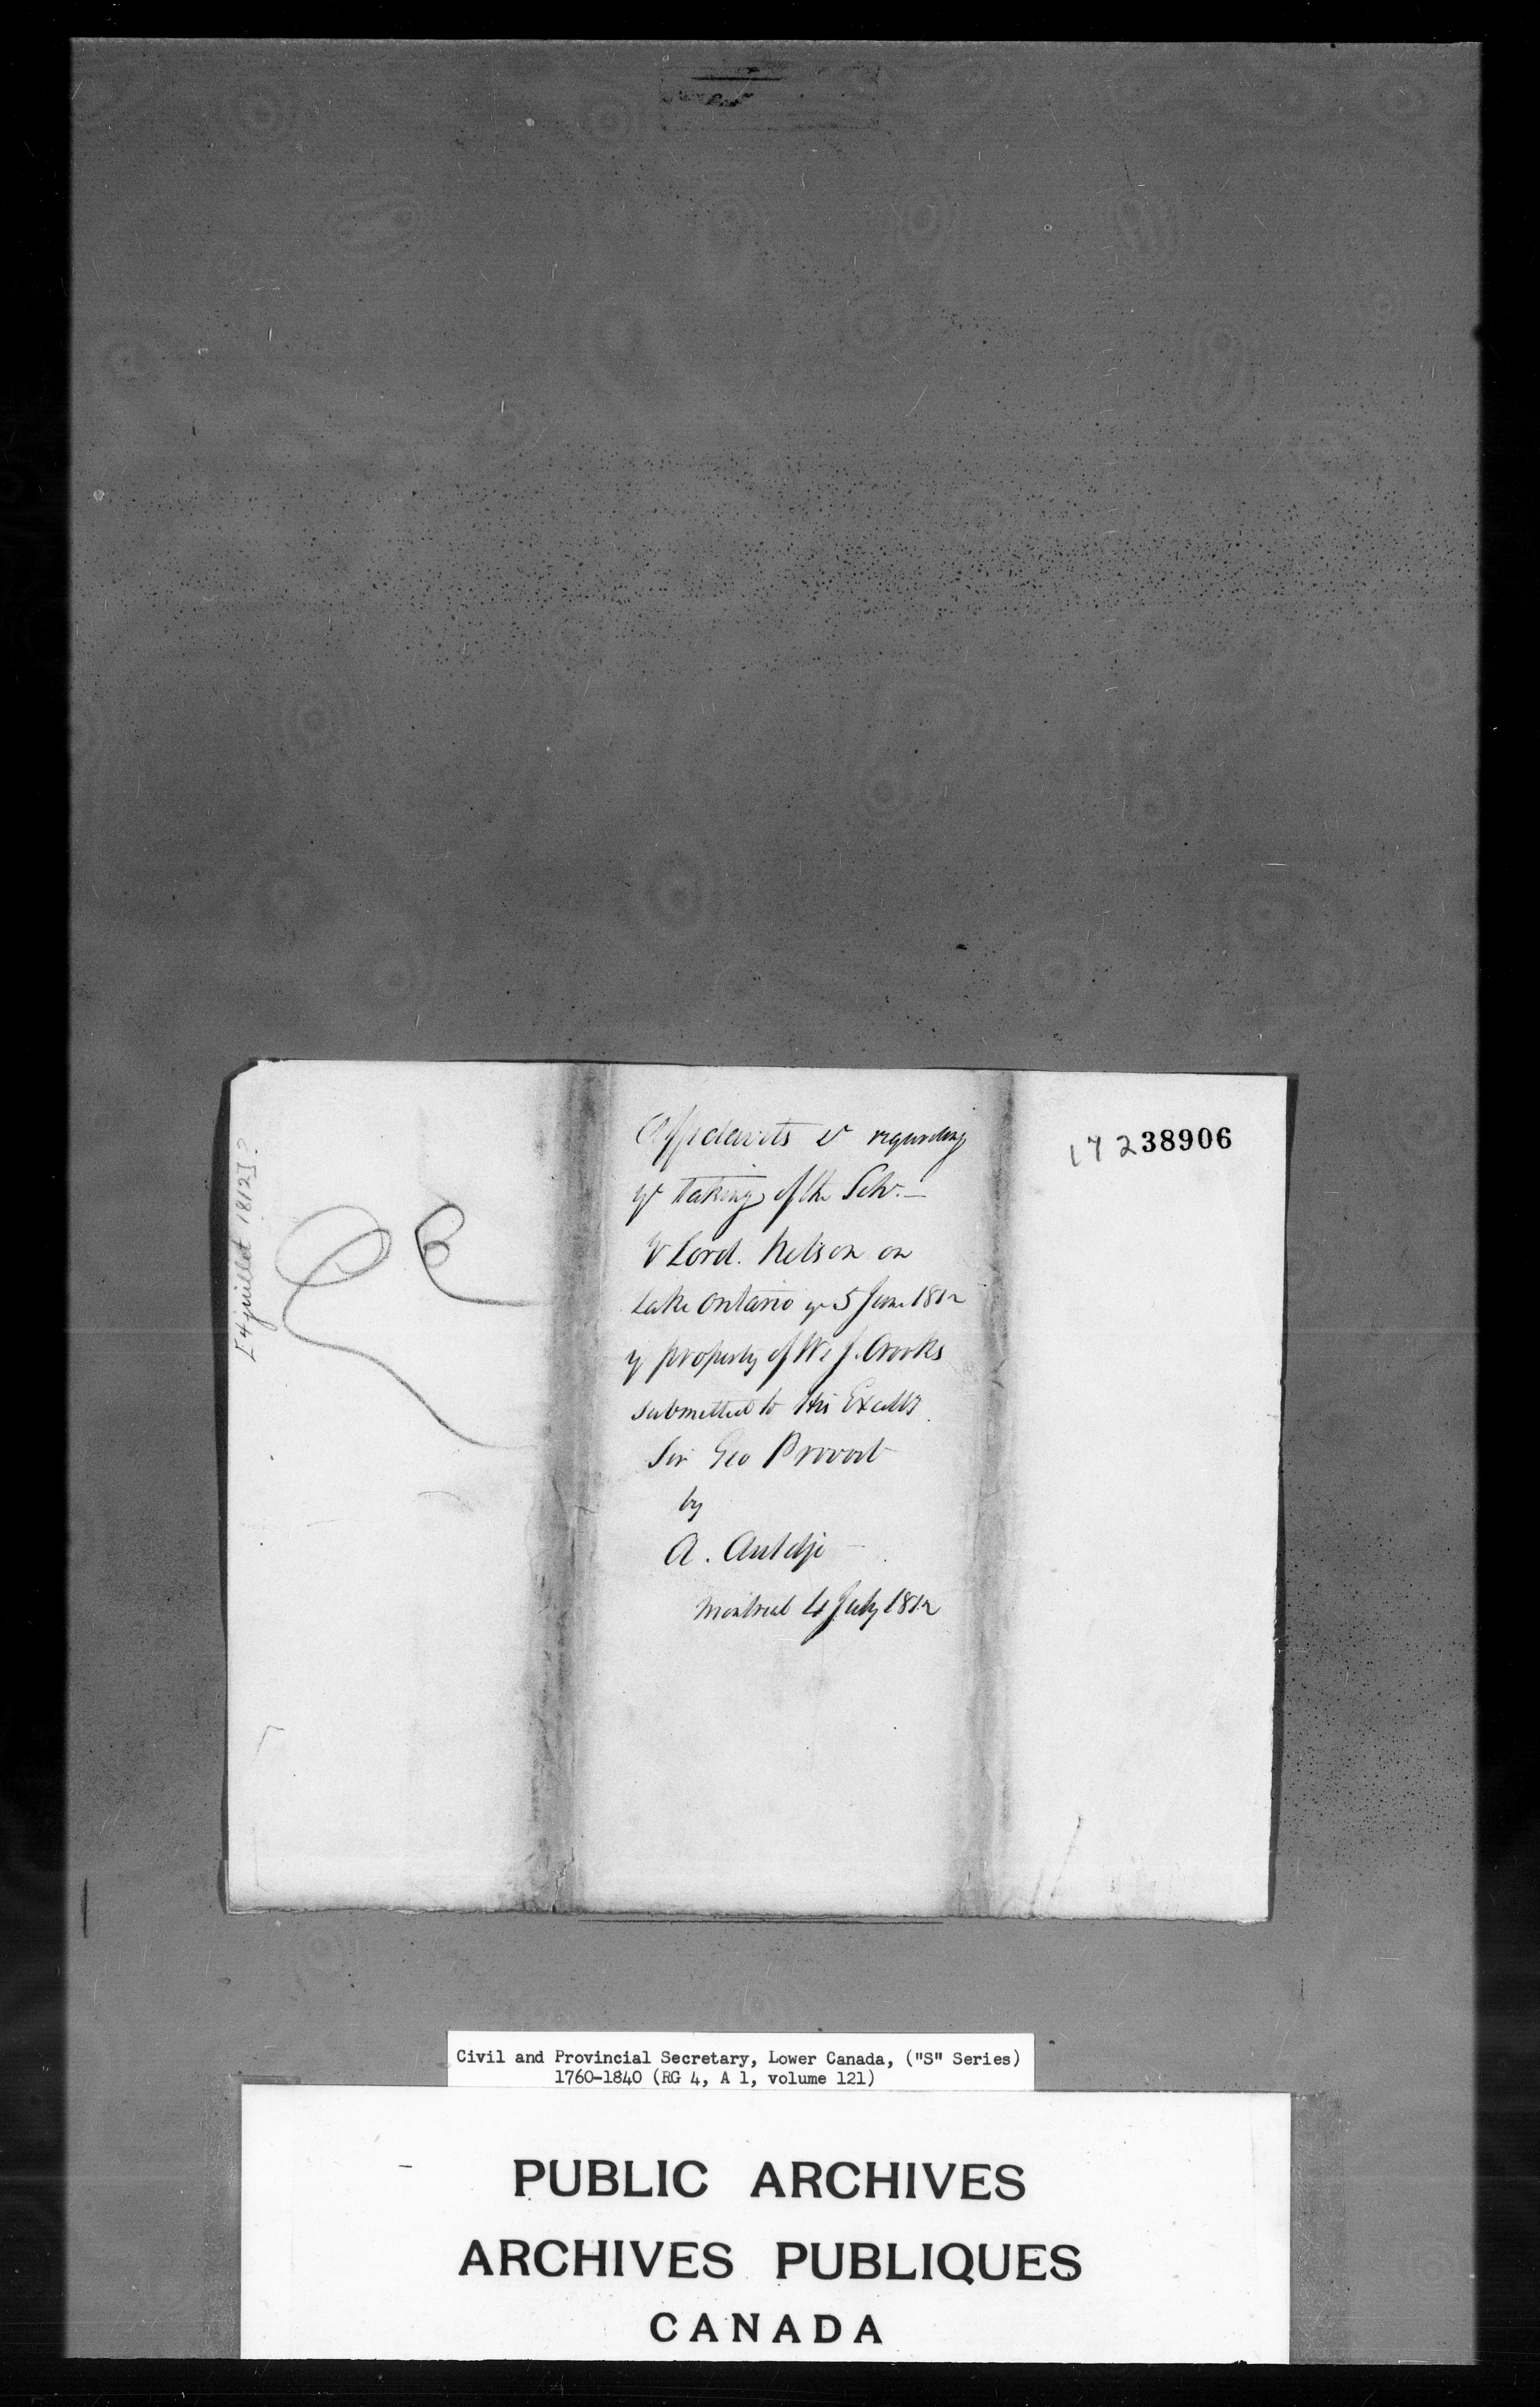 [4 juillet 1812]?
Affidavits & regarding
ye taking of the Schr. —
Lord. Nelson on
Lake Ontario ye 5 June 1812
ye property of W & J. Crooks
submitted to His Excelly
Sir Geo Prevost
by
A. Auldjo
Montreal 4 July 1812
172 38906
Civil and Provincial Secretary, Lower Canada, ("S" Series)
1760-1840 (RG 4, A 1, volume 121)
PUBLIC ARCHIVES
ARCHIVES PUBLIQUES
CANADA